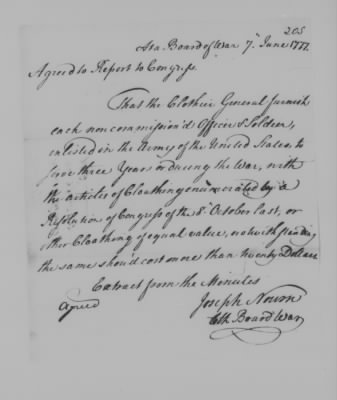 205
At a Board of War 7th June 1777
Agreed to Report to Congress
That the Clothier General furnish
each non commission'd Officer & Soldier,
enlisted in the Army of the United States, to
serve three Years or during the War, with
the articles of Cloathing enumerated by a
Resolution of Congress of the 8th October last, or
other Cloathing of equal value, notwithstanding
the same shou'd cost more than twenty Dollars
Extract from the Minutes
Agreed Joseph Nourse
Clk Board War